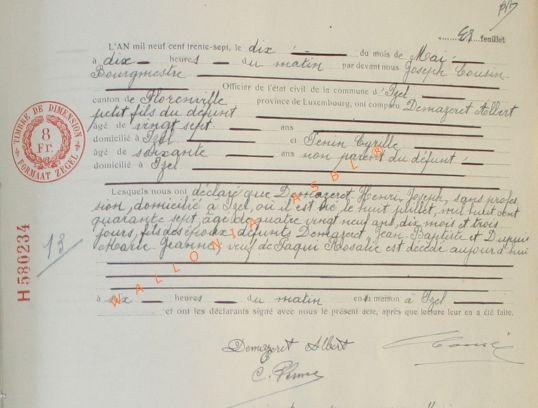 feuillet
L'AN mil neuf cent trente-sept, le dix du mois de Mai
à dix heures du matin par devant nous Joseph Cousin
Bourgmestre
Officier de l'état civil de la commune d'Izel
canton de Florenville province de Luxembourg, ont comparu Demazeret Albert
petit fils du défunt
âgé de vingt sept ans
domicilié à Izel et Penin Cyrille
âgé de soixante ans non parent du défunt
domicilié à Izel
Lesquels nous ont déclaré que Demazeret Henri Joseph, sans profes
sion, domicilié à Izel, où il est né le huit juillet, mil huit cent
quarante sept, âgé de quatre vingt neuf ans, dix mois et trois
jours, fils des époux défunts Demazeret Jean-Baptiste et Dupuis
Marie Jeanne, veuf de Paqui Rosalie est décédé aujourd'hui
à dix heures du matin en sa maison à Izel
et ont les déclarants signé avec nous le présent acte, après que lecture leur en a été faite.
Demazeret Albert
TIMBRE DE DIMENSION
8
Fr.
FORMAAT ZEGEL
H 580234
13
WALLONIA ASBL ®